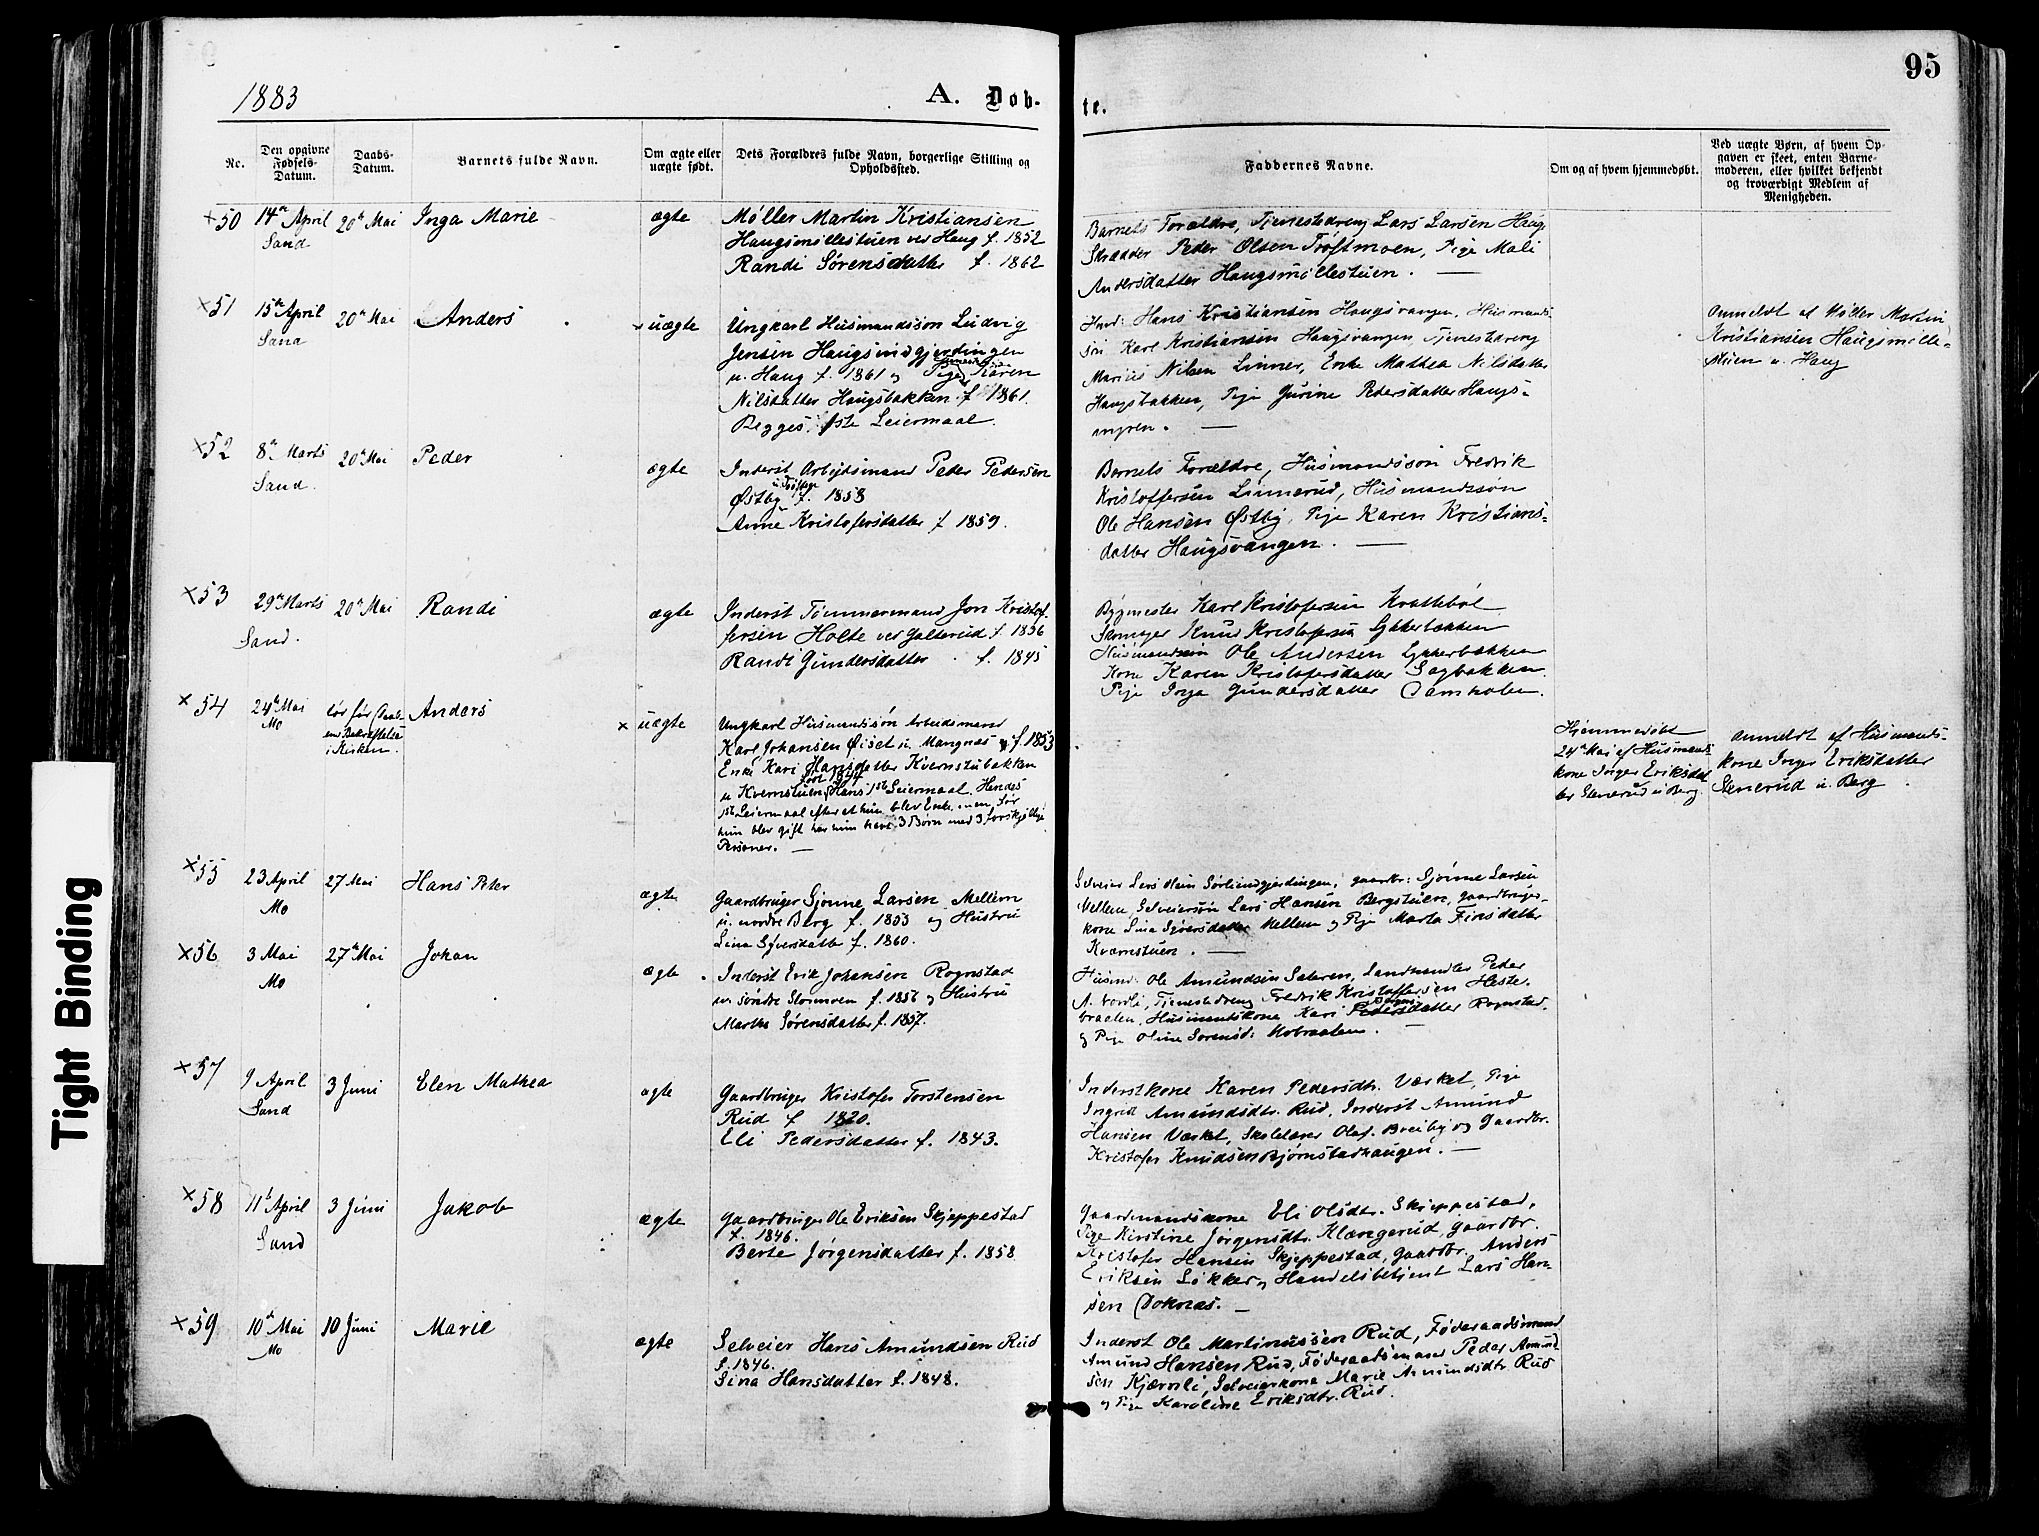 95
1883
A. Døb-
te.
Nr.
Den opgivne Fødsels-Datum.
Daabs-Datum.
Barnets fulde Navn.
Om ægte eller uægte født.
Dets Forældres fulde Navn, borgerlige Stilling og Opholdssted.
Faddernes Navne.
Om og af hvem hjemmedøbt.
Ved uægte Børn, af hvem Op-
gaven er skeet, enten Barne-
moderen, eller hvilket bekjendt
og troværdigt Medlem af
Menigheden.
×50 14de April 20de Mai Inga Marie ægte
Sand
Møller Martin Kristiansen
Haugsmøllestuen ves Haug f. 1852
Randi Sørensdatter f. 1862
Barnets Forældre, Tjenestedreng Lars Larsen Haug,
Skrædder Peder Olsen Trøftmoen, Pige Mali
Andersdatter Haugsmøllestuen. —
×51 15de April 20de Mai Anders × uægte
Sand
Ungkarl Husmandssøn Ludvig
Jensen Haugsindgjerdingen
u. Haug f. 1861 og Pige Karen
Nilsdatter Haugsbakken f. 1861.
Begges 1ste Leiermaal.
Husm: Hans Kristiansen Haugsvangen, Husmands-
søn Karl Kristiansen Haugsvangen Tjenestedreng
Marius Nilsen Linner, Enke Mathea Nilsdatter
Haugsbakken, Pige Gurine Pedersdatter Haugs-
myren. —
Anmeldt af Møller Martin
Kristiansen Haugsmølle-
stuen u. Haug
×52 8de Marts 20de Mai Peder ægte
Sand.
Inderst Arbejdsmand Peder Pedersen
Østby f. 1858
Anne Kristofersdatter f 1859.
Barnets Forældre, Husmandssøn Fredrik
Kristoffersen Linnerud, Husmandssøn
Ole Hansen Østby, Pige Karen Kristians-
datter Haugsvangen. —
×53 29de Marts 20de Mai Randi ægte
Sand.
Inderst Tømmermand Jon Kristof-
fersen Holte ves Galterud f. 1856
Randi Gundersdatter f. 1845
Bygmester Karl Kristofersen Krattebøl
Skomager Knud Kristofersen Lykkebakken
Husmandssøn Ole Andersen Lykkebakken
Kone Karen Kristofersdatter Sagbakken.
Pige Inga Gundersdatter
×54 24de Mai Anders × uægte
Mo
død før Daab-
ens Bekræftelse
i Kirken.
Ungkarl Husmandssøn Arbeidsmand
Karl Johansen Øiset u. Mangnæs f. 1853
Enke Kari Hansdatter Kvernstubakken
u Kvernstuen født 1844 Hans 1ste Leiermaal. Hendes
1ste Leiermaal efter at hun blev Enke, men før
hun blev gift har hun havt 3 Børn med 3 forskjellige
Personer. —
Hjemmedøbt
24de Mai af Husmands-
kone Inger Eriksdat-
ter Stenerud u Berg
anmeldt af Husmands-
kone Inger Eriksdatter
Stenerud u. Berg
×55 23 April 27 Mai Hans Peter ægte
Mo
Gaardbruger Sjønne Larsen Mellem
u. nordre Berg f. 1853 og Hustru
Lina Syversdatter f. 1860.
Selveier Lars Olsen Sørliindgjerdingen, gaardbr: Sjønne Larsen
Mellem, Selveiersøn Lars Hansen Bergstuen, gaardbruger-
kone Lina Syversdatter Mellem og Pige Marta Finsdatter
Kværnstuen. —
×56 3 Mai 27de Mai Johan ægte
Mo
Inderst Erik Johansen Rognstad
u. søndre Stormoen f. 1856 og Hustru
Marthe Sørensdatter f. 1857.
Husmd: Ole Amundsen Sæteren, Landhandler Peder
A. Nordli, Tjenestedreng Fredrik Kristoffersen Heste-
braaten, Husmandskone Kari Pedersdatter Rognstad.
og Pige Oline Sørensd: Mobraaten. —
×57 9 April 3 Juni Elen Mathea ægte
Sand
Gaardbruger Kristofer Torstensen
Rud f 1820.
Eli Pedersdatter f. 1843.
Inderstkone Karen Pedersdtr. Værket, Pige
Ingrid Amundsdtr. Rud, Inderst Amund
Hansen Værket, Skolelærer Olaf. Breiby og Gaardbr.
Kristofer Knudsen Bjørnstadhaugen. —
×58 11te April 3 Juni Jakob ægte
Sand
Gaardbruger Ole Eriksen Skjeppestad
f. 1846.
Berte Jørgensdatter f. 1858
Gaardmandskone Eli Olsdtr. Skjeppestad,
Pige Kirstine Jørgensdtr. Klængerud, gaardbr.
Kristofer Hansen Skjeppestad, gaardbr. Anders
Eriksen Løkker og Handelsbetjent Lars Han-
sen Doknæs. —
×59 10de Mai 10 Juni Marie ægte
Mo
Selveier Hans Amundsen Rud
f. 1846.
Sina Hansdatter f. 1848.
Inderst Ole Martinussen Rud, Føderaadsmand
Amund Hansen Rud, Føderaadsmand Peder Amund-
sen Kjærnli, Selveierkone Marie Amundsdtr. Rud
og Pige Karoline Eriksdtr. Rud.
Tight Binding